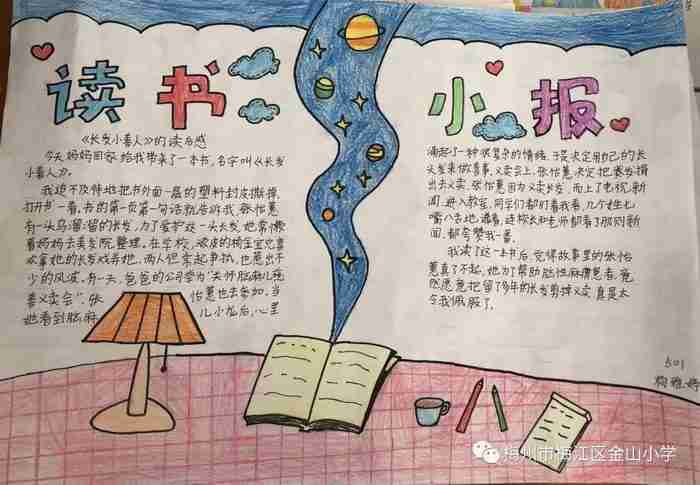 读书小报
《长发小善人》的读后感
今天妈妈回家给我带来了一本书,名字叫《长发
小善人》。
我迫不及待地把书外面一层的塑料封皮撕掉,
打开书一看,书的第一页第一句话就告诉我,张怡蕙
有一头乌溜溜的长发,为了爱护这一头长发,她常懒
着妈妈去美发院整理。在学校,顽皮的楠宝宝总喜
欢拿她的长发戏弄她,两人但索起争执,也惹出不
少的风波。有一天,爸爸的公司举办“关怀脑麻儿慈
善义卖会”,张怡蕙也去参加,当
她看到脑麻儿小龙后,心里
涌起了一种很复杂的情绪,于是决定用自己的长
头发来做善事,义卖会上,张怡蕙决定把秀发捐
出去义卖,张怡蕙因为义卖长发,而上了电视新
闻,进入教室,同学们都盯着我看,几个姓七
嘴八舌地 着,连校长和老师都看了那则新
闻,都夸赞我一番。
我读了这一本书后,觉得故事里的张怡
蕙真了不起,她为了帮助脑性麻痹患者,竟
然愿意把留了多年的长发剪掉义卖,真是太
令我佩服了。
501
雅婷
梅州市梅江区金山小学